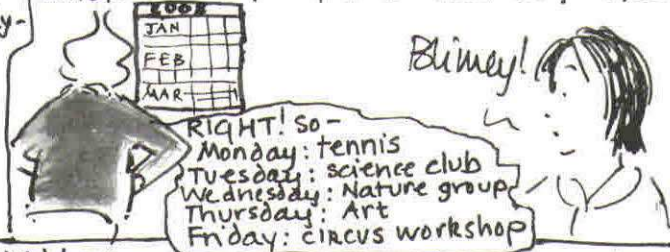 2008
JAN
FEB
MAR
Blimey!
RIGHT! So –
Monday: tennis
Tuesday: science club
Wednesday: Nature group
Thursday: Art
Friday: circus workshop